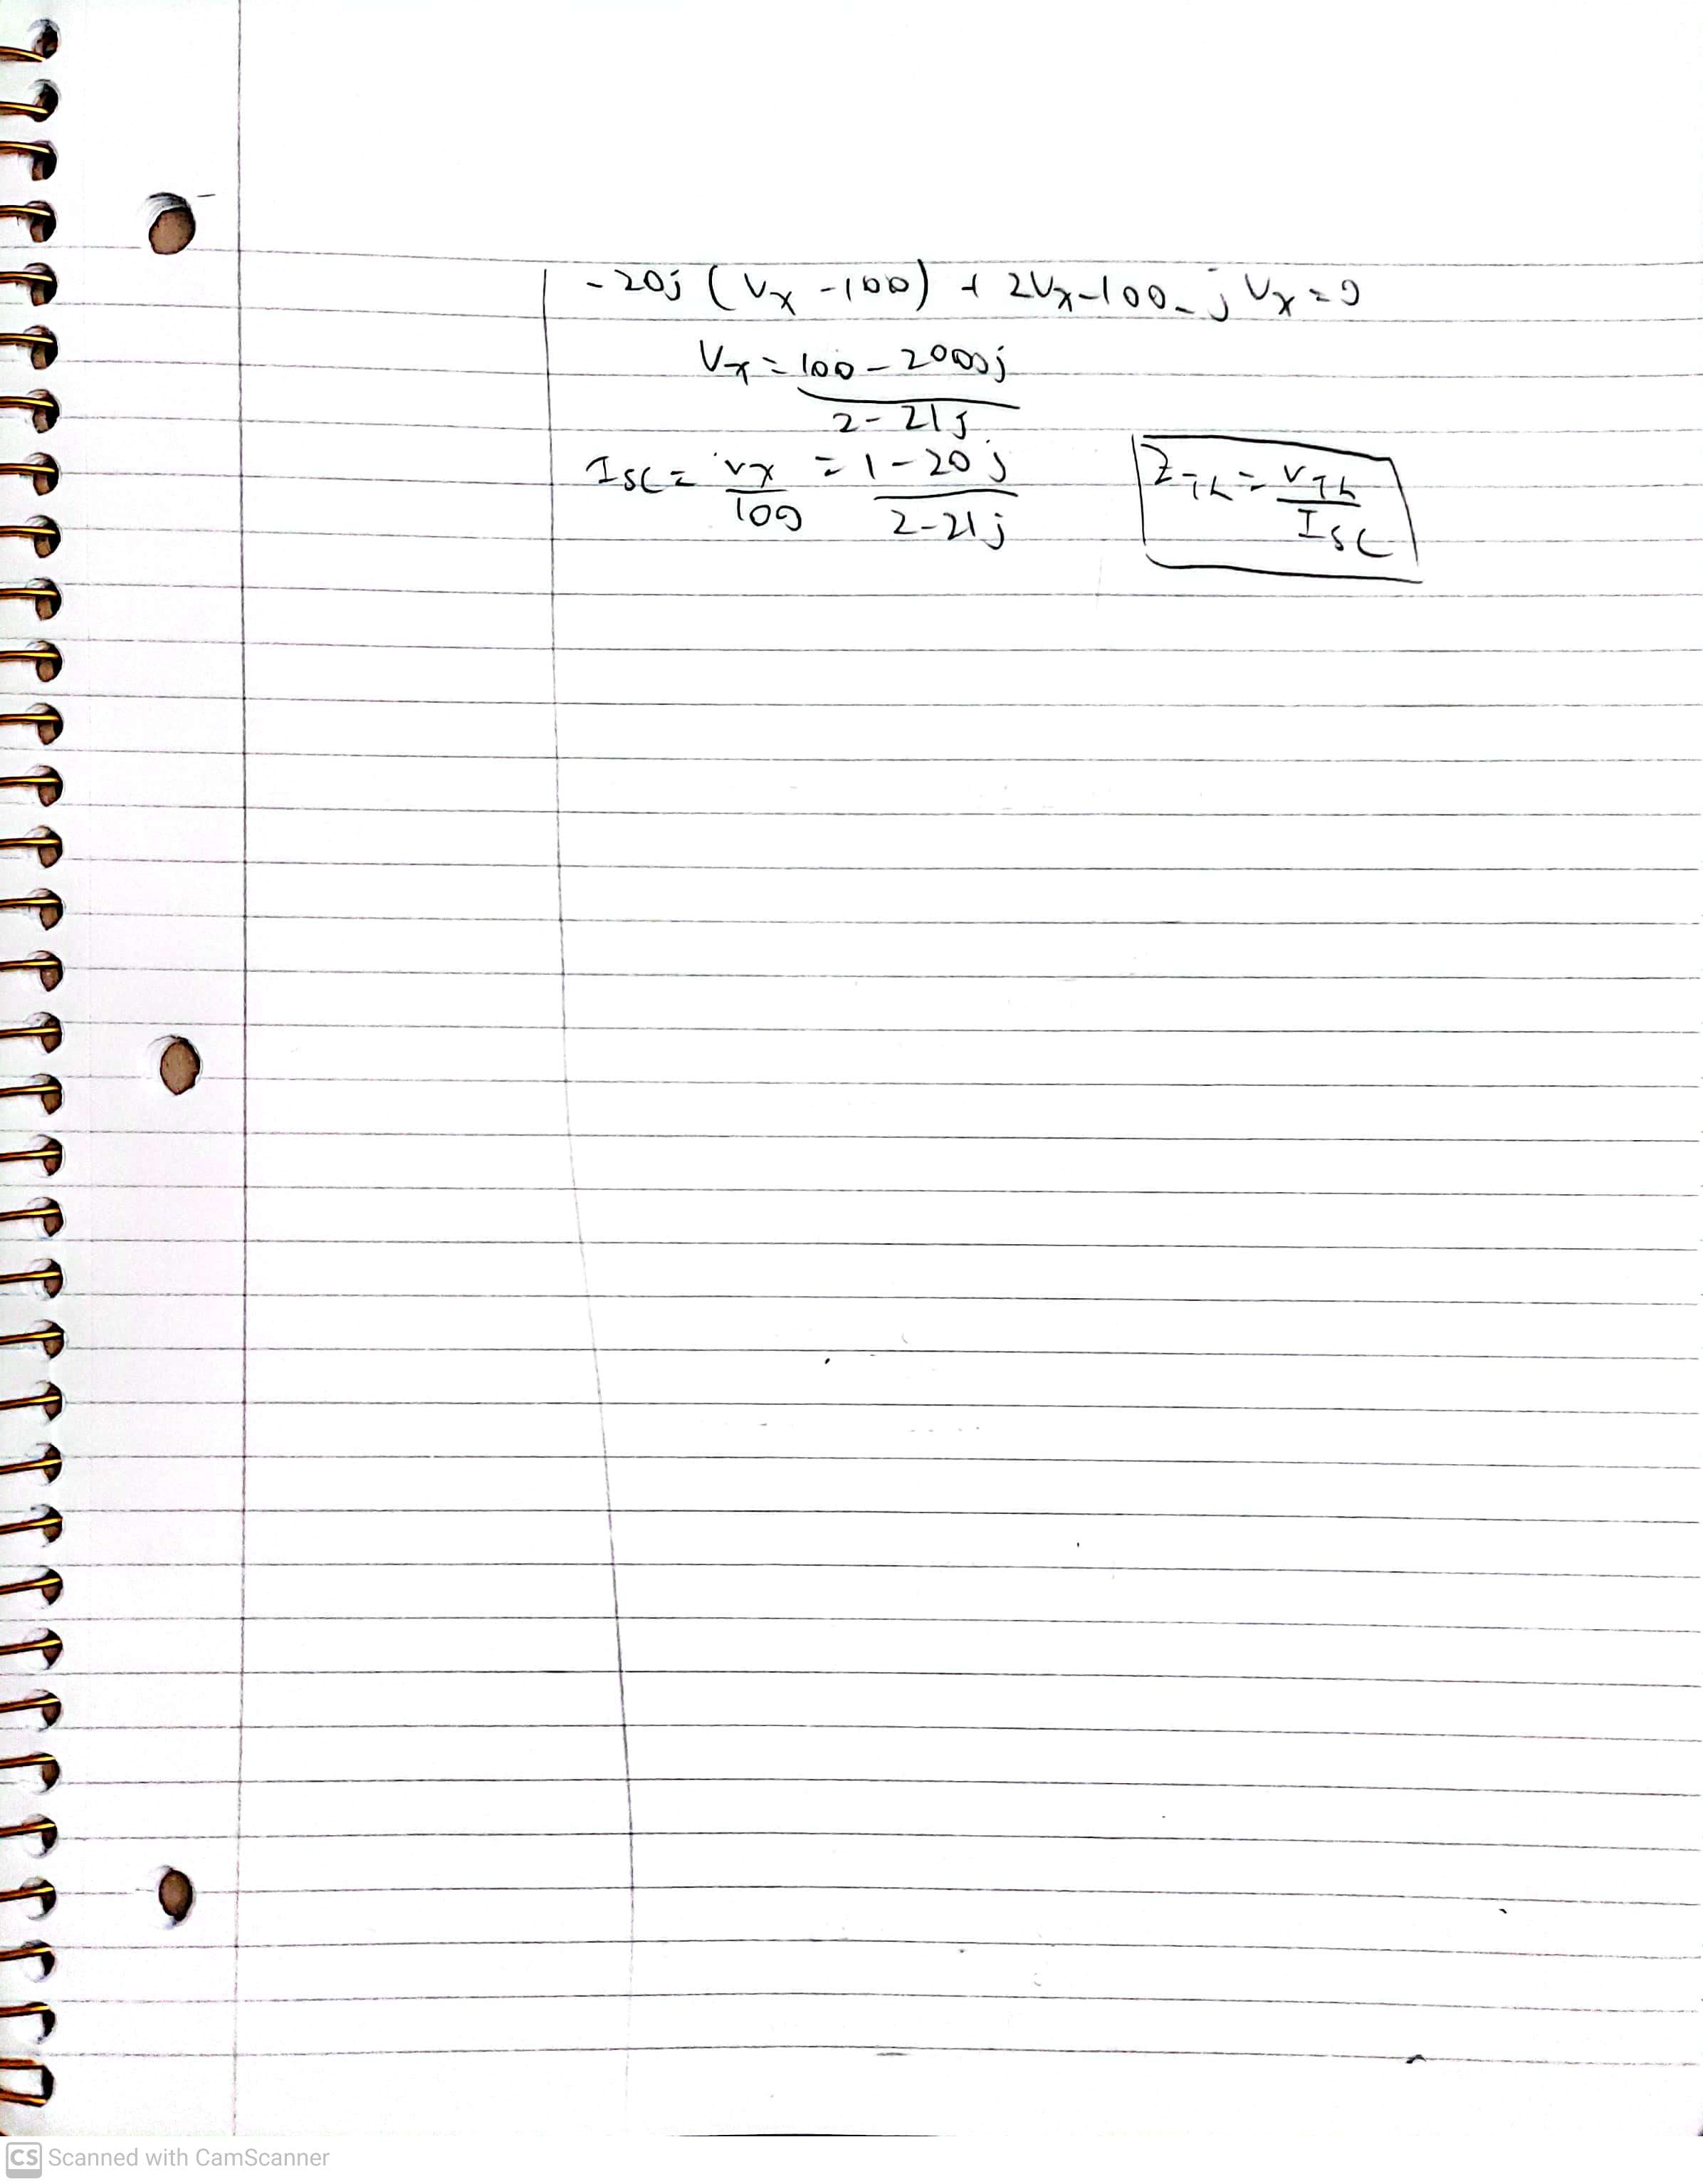 -20j (Vx -100) + 2Vx-100-j Vx = 0
Vx = 100 - 2000j
2-21j
Isc = Vx = 1-20j
100 2-21j
ZTh = VTh
Isc
CS Scanned with CamScanner